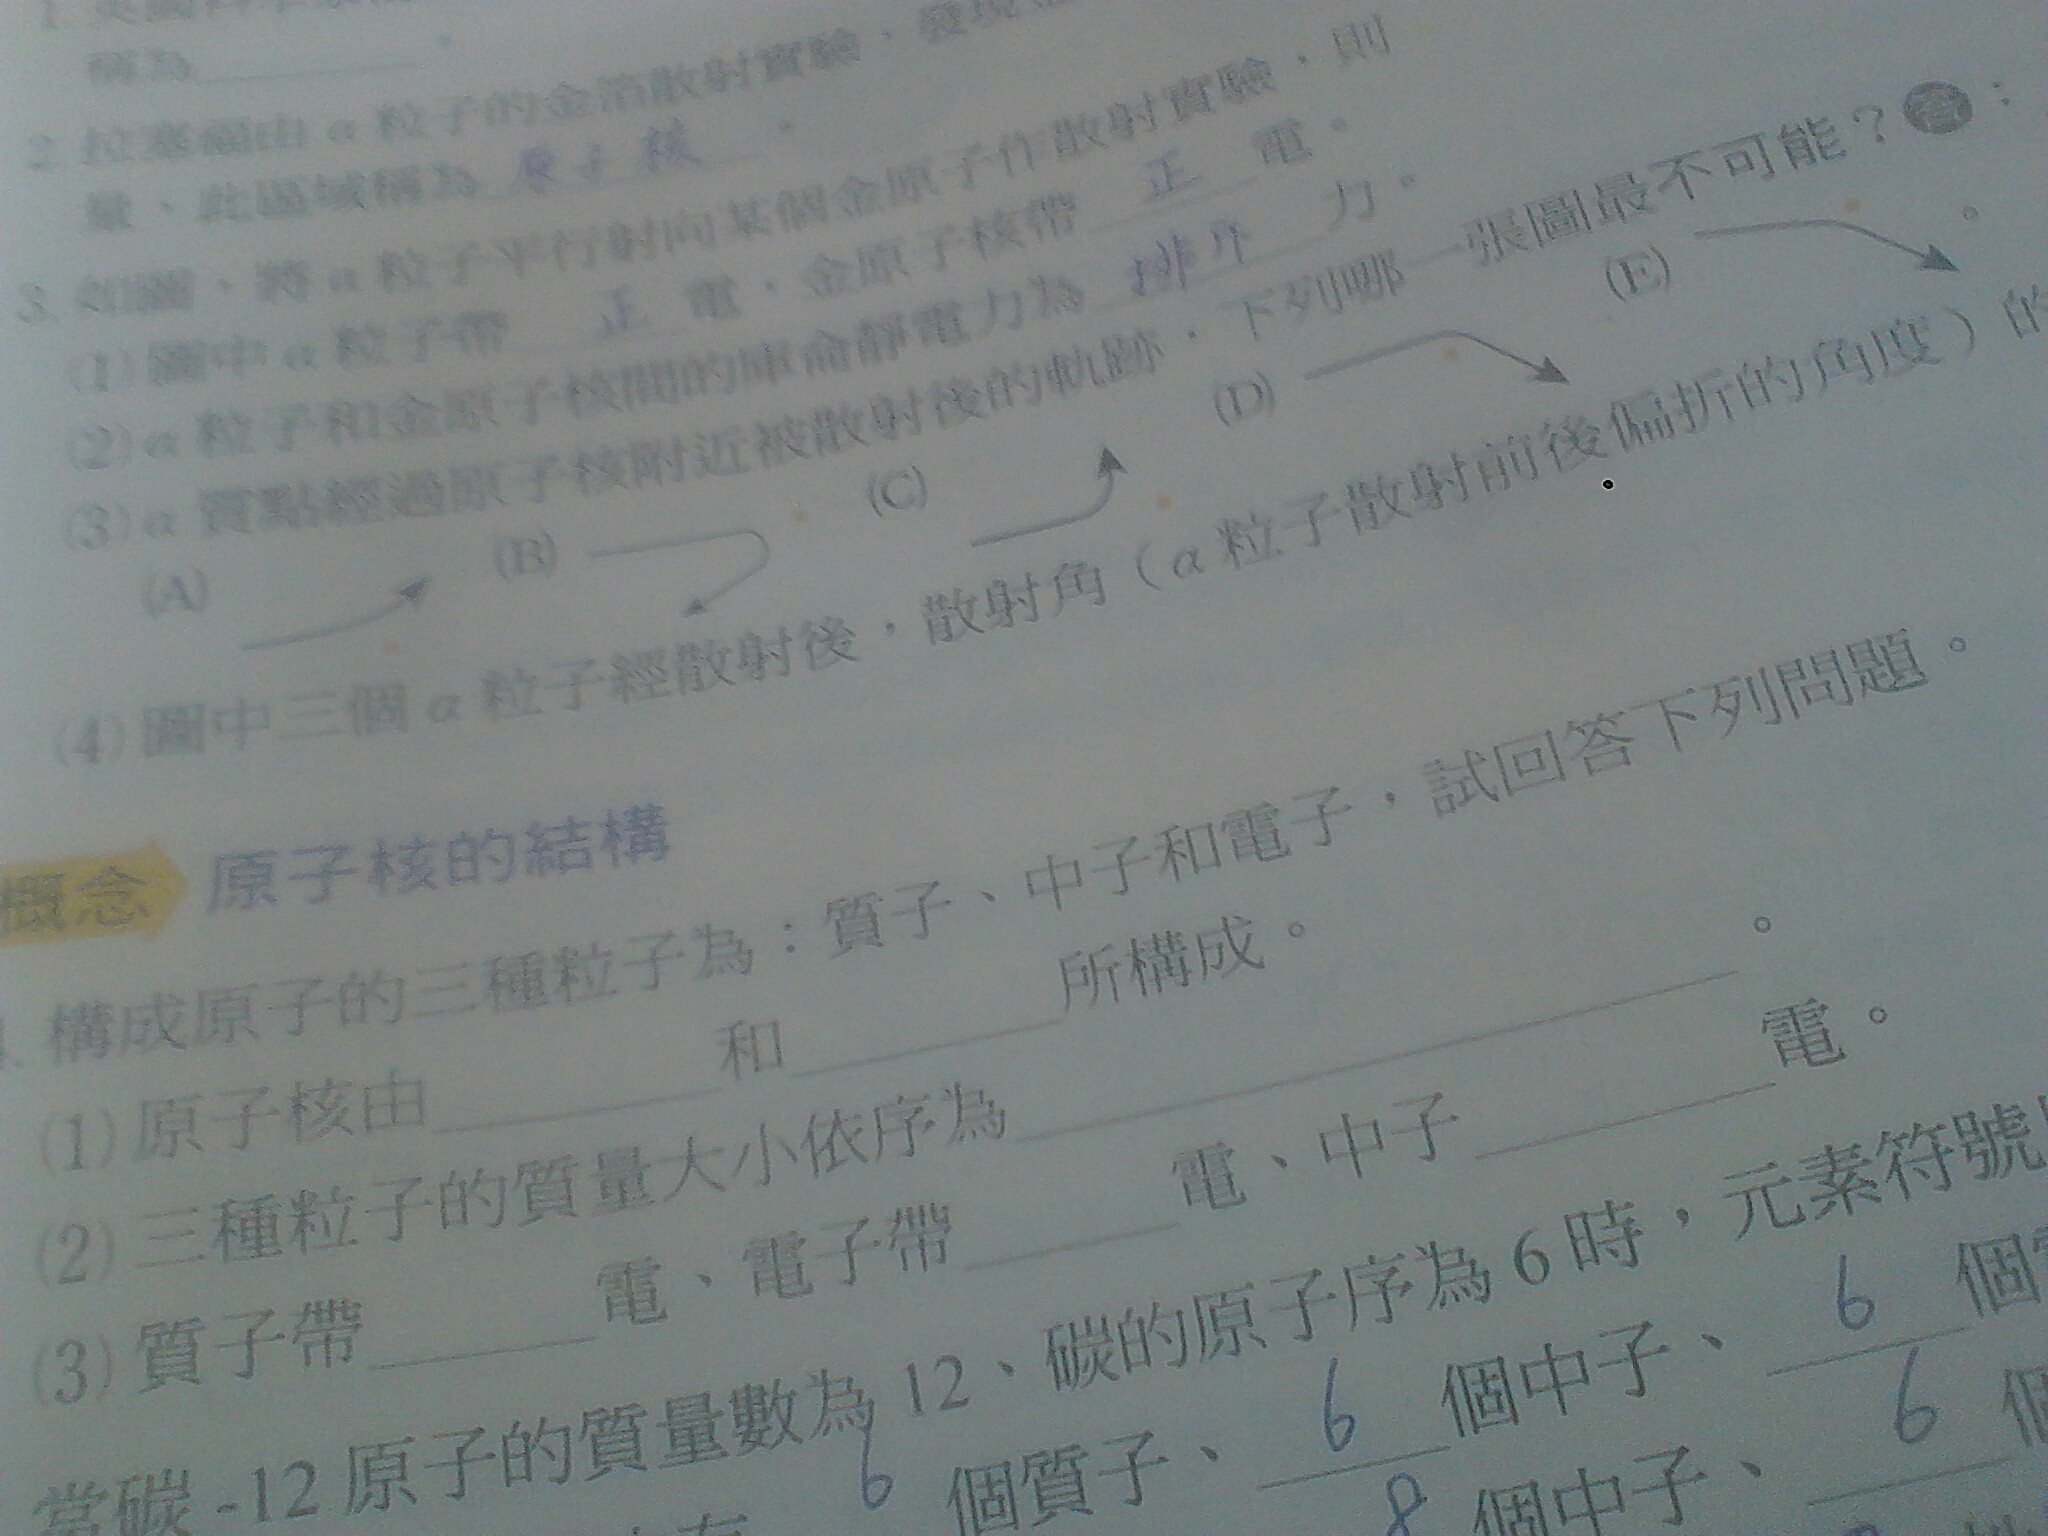 1. 英國科學家
稱為 。
2. 拉塞福由 α 粒子的金箔散射實驗,發現
量,此區域稱為 原子核 。
3. 如圖,將 α 粒子平行射向某個金原子作散射實驗,則
(1) 圖中 α 粒子帶 正 電,金原子核帶 正 電。
(2) α 粒子和金原子核間的庫侖靜電力為 排斥 力。
(3) α 質點經過原子核附近被散射後的軌跡,下列哪一張圖最不可能?答: 。
(A) (B) (C) (D) (E)
(4) 圖中三個 α 粒子經散射後,散射角(α 粒子散射前後偏折的角度)的
概念 原子核的結構
構成原子的三種粒子為:質子、中子和電子,試回答下列問題。
(1) 原子核由 和 所構成。
(2) 三種粒子的質量大小依序為 。
(3) 質子帶 電、電子帶 電、中子 電。
當碳 -12 原子的質量數為 12、碳的原子序為 6 時,元素符號
6 個質子、 6 個中子、 6 個
8 個中子、 6 個